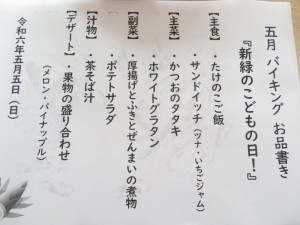 五月 バイキング お品書き
『新緑のこどもの日！』
【主食】
・たけのこご飯
・サンドイッチ（ツナ・いちごジャム）
【主菜】
・かつおのタタキ
ホワイトグラタン
【副菜】
・厚揚げとふきとぜんまいの煮物
ポテトサラダ
【汁物】
・茶そば汁
【デザート】
・果物の盛り合わせ
（メロン・パイナップル）
令和六年五月五日（日）